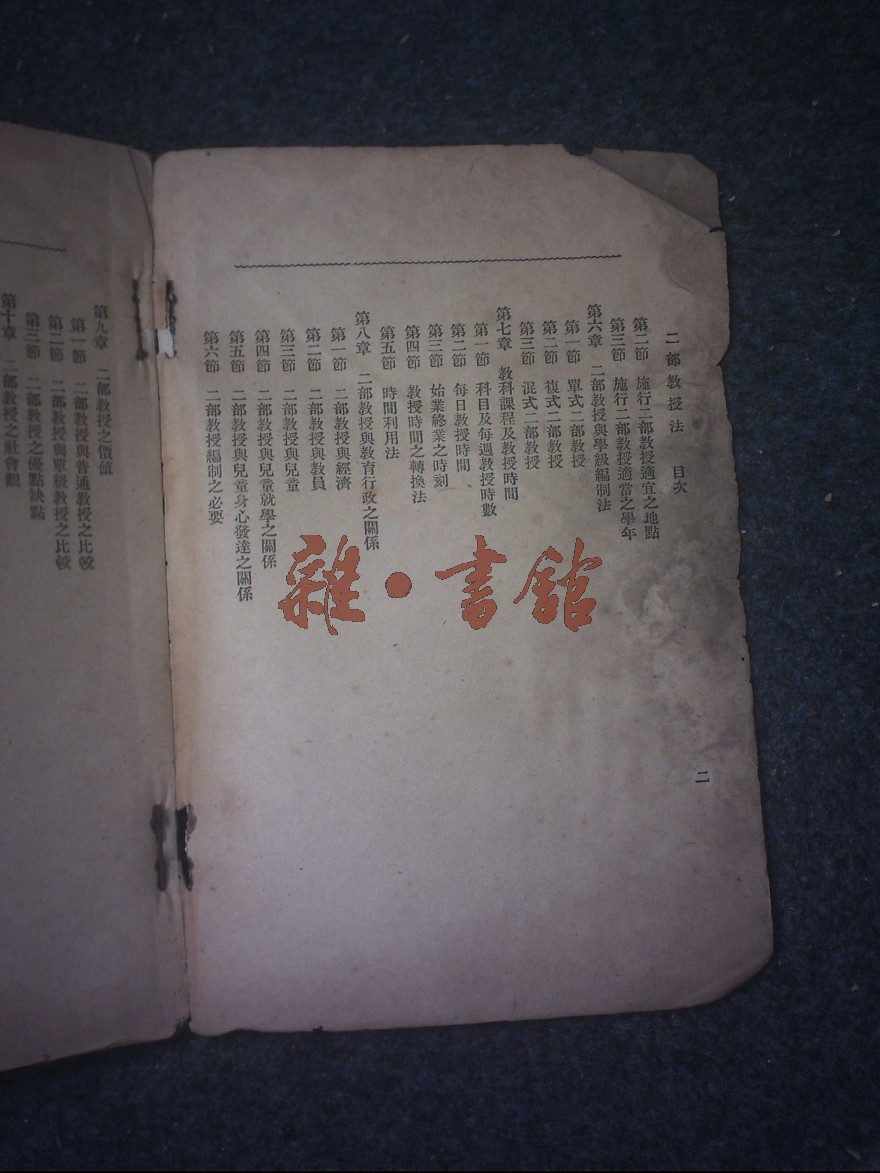 二部教授法 目次
第二節 施行二部教授適宜之地點
第三節 施行二部教授適當之學年
第六章 二部教授與學級編制法
第一節 單式二部教授
第二節 複式二部教授
第三節 混式二部教授
第七章 教科課程及教授時間
第一節 科目及每週教授時數
第二節 每日教授時間
第三節 始業終業之時刻
第四節 教授時間之轉換法
第五節 時間利用法
第八章 二部教授與教育行政之關係
第一節 二部教授與經濟
第二節 二部教授與教員
第三節 二部教授與兒童
第四節 二部教授與兒童就學之關係
第五節 二部教授與兒童身心發達之關係
第六節 二部教授編制之必要
二
第九章 二部教授之價値
第一節 二部教授與普通教授之比較
第二節 二部教授與單級教授之比較
第三節 二部教授之優點缺點
第十章 二部教授之社會觀
雜•書館